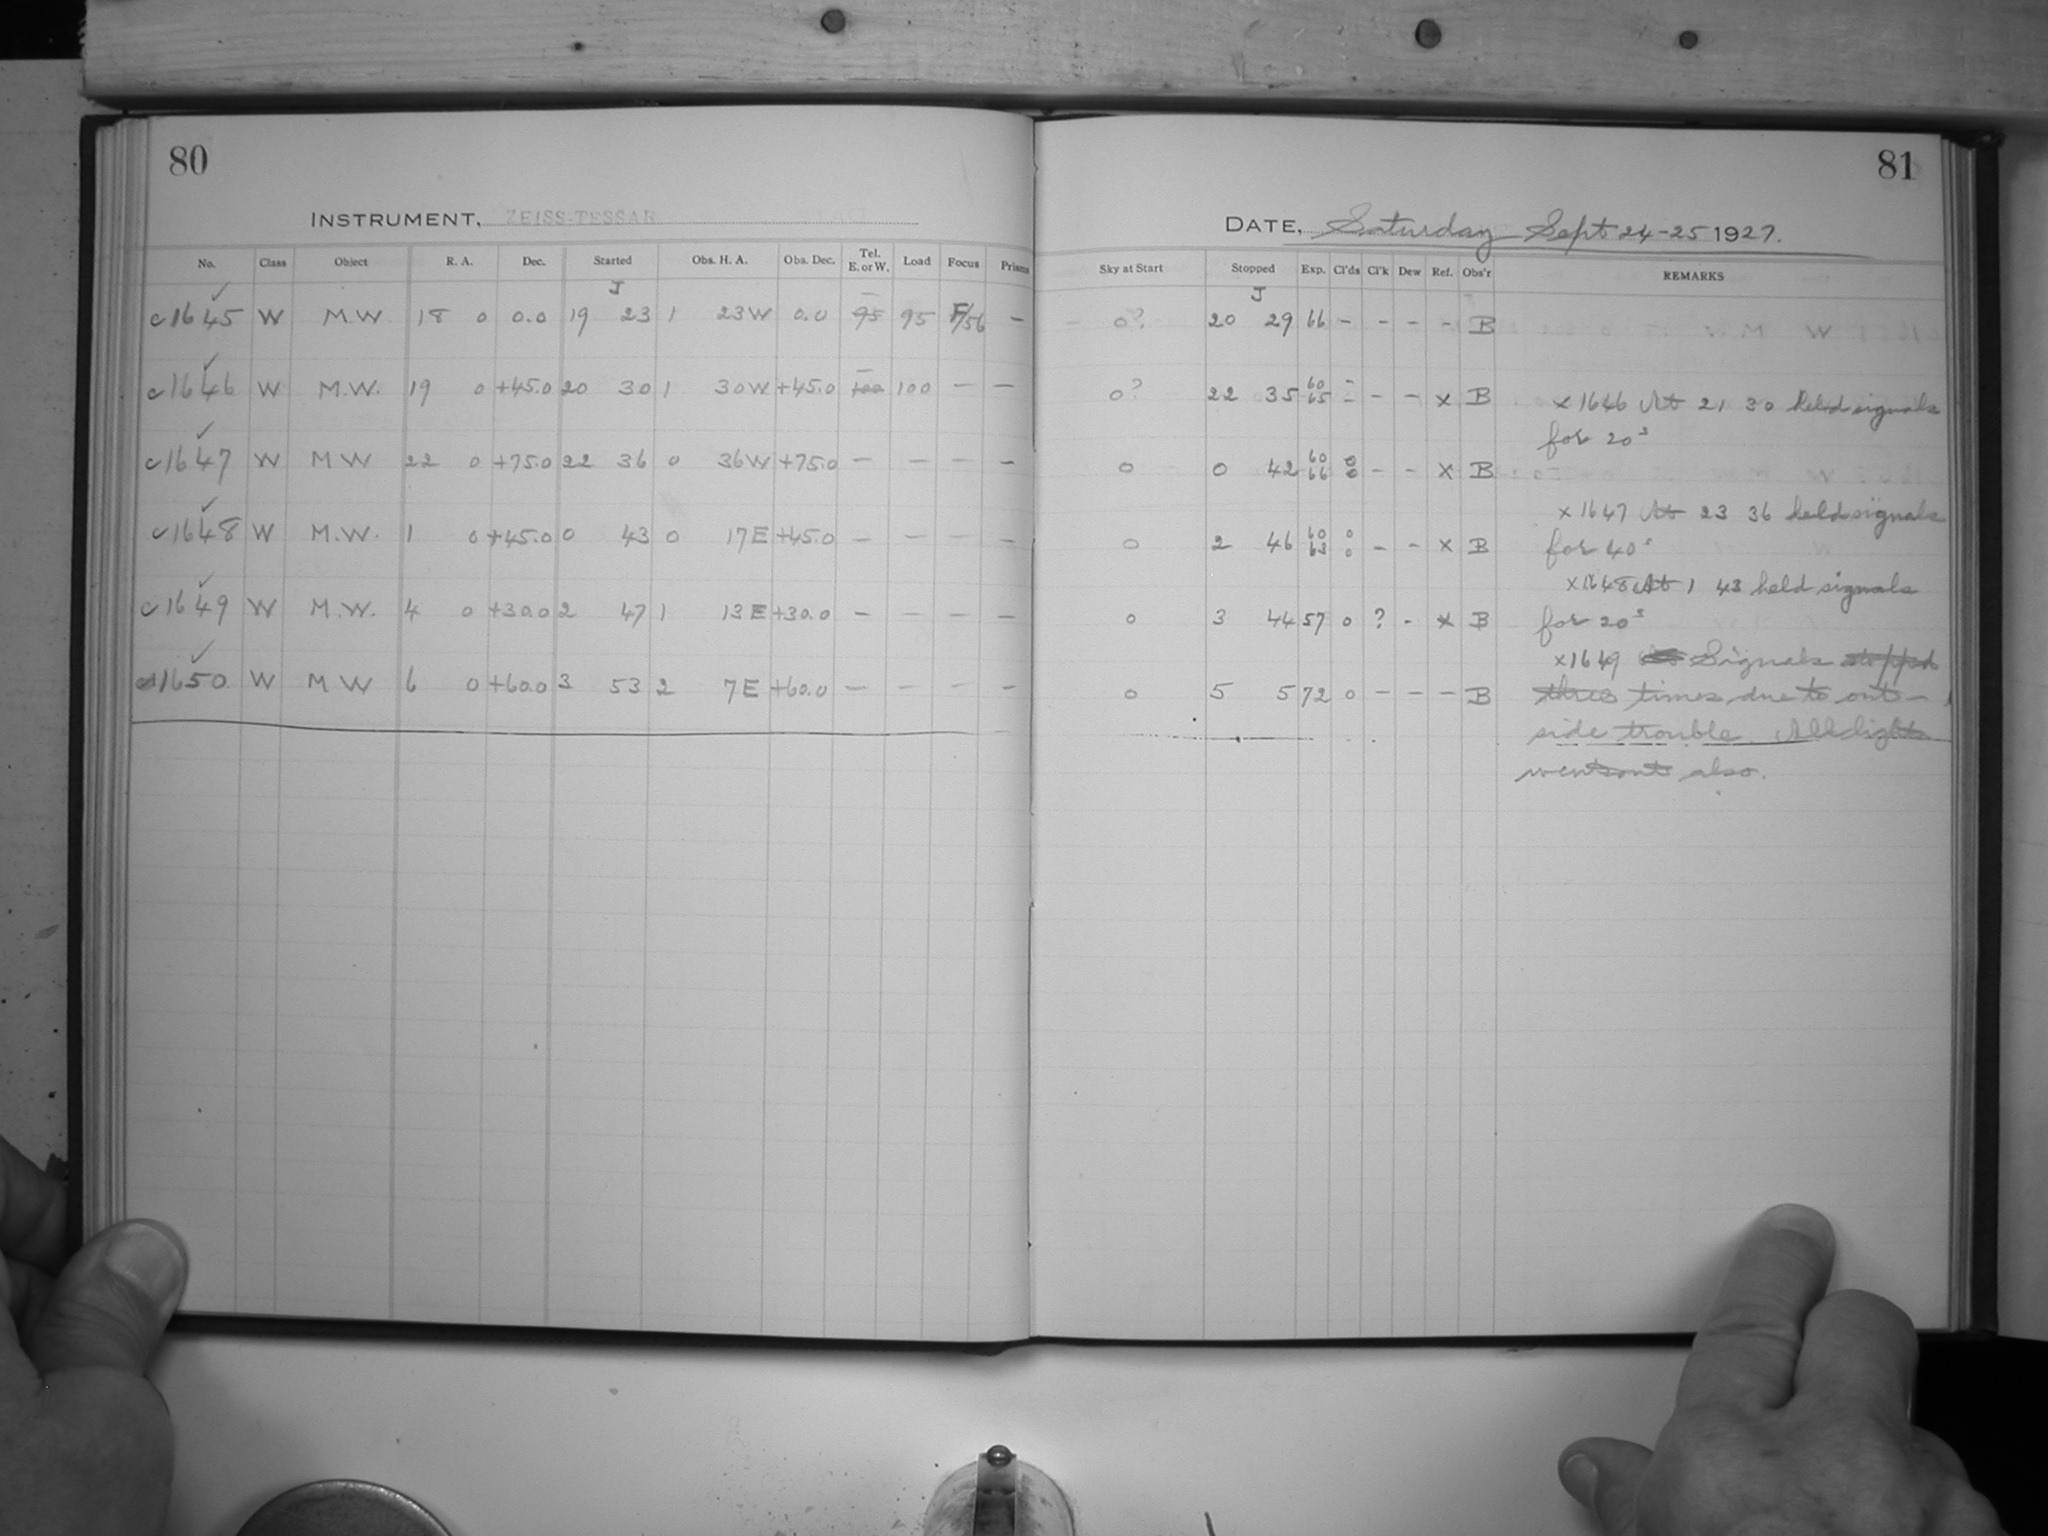 80
INSTRUMENT, ZEISS-TESSAR
No. Class Object R. A. Dec. Started Obs. H. A. Obs. Dec. Tel. E. or W. Load Focus Prisms
J
c1645 W M.W. 18 0 0.0 19 23 1 23W 0.0 — 95 95 F/56 —
c1646 W M.W. 19 0 +45.0 20 30 1 30W +45.0 — 100 100 — —
c1647 W M W 22 0 +75.0 22 36 0 36W +75.0 — — — —
c1648 W M.W. 1 0 +45.0 0 43 0 17E +45.0 — — — —
c1649 W M.W. 4 0 +30.0 2 47 1 13E +30.0 — — — —
1650 W M W 6 0 +60.0 3 53 2 7E +60.0 — — — —
81
DATE, Saturday Sept 24-25 1927.
Sky at Start Stopped Exp. Cl'ds Cl'k Dew Ref. Obs'r REMARKS
J
0? 20 29 66 – – – – B
0? 22 35 60 65 – – – – x B
x 1646 At 21 30 held signals
for 20s
0 0 42 60 66 0 0 – – x B
x 1647 At 23 36 held signals
0 2 46 60 63 0 0 – – x B
for 40s
x1648 At 1 43 held signals
0 3 44 57 0 ? - x B
for 20s
x1649 Signals stopped
0 5 5 72 0 – – – B
three times due to out-
side trouble. All lights
went out also.